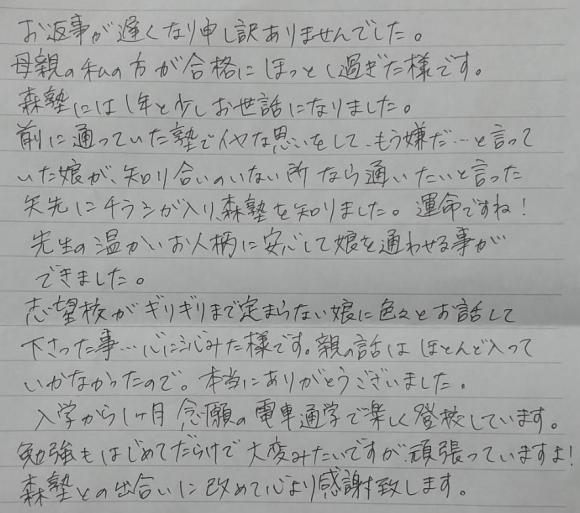 お返事が遅くなり申し訳ありませんでした。
母親の私の方が合格にほっとし過ぎた様です。
森塾には1年と少しお世話になりました。
前に通っていた塾でイヤな思いをして、もう嫌だ…と言って
いた娘が、知り合いのいない所なら通いたいと言った
矢先にチラシが入り、森塾を知りました。運命ですね!
先生の温かいお人柄に安心して娘を通わせる事が
できました。
志望校がギリギリまで定まらない娘に色々とお話して
下さった事…心にしみた様です。親の話はほとんど入って
いかなかったので。本当にありがとうございました。
入学から1ヶ月 念願の電車通学で楽しく登校しています。
勉強もはじめてだらけで大変みたいですが、頑張っていますよ!
森塾との出合いに改めて心より感謝致します。